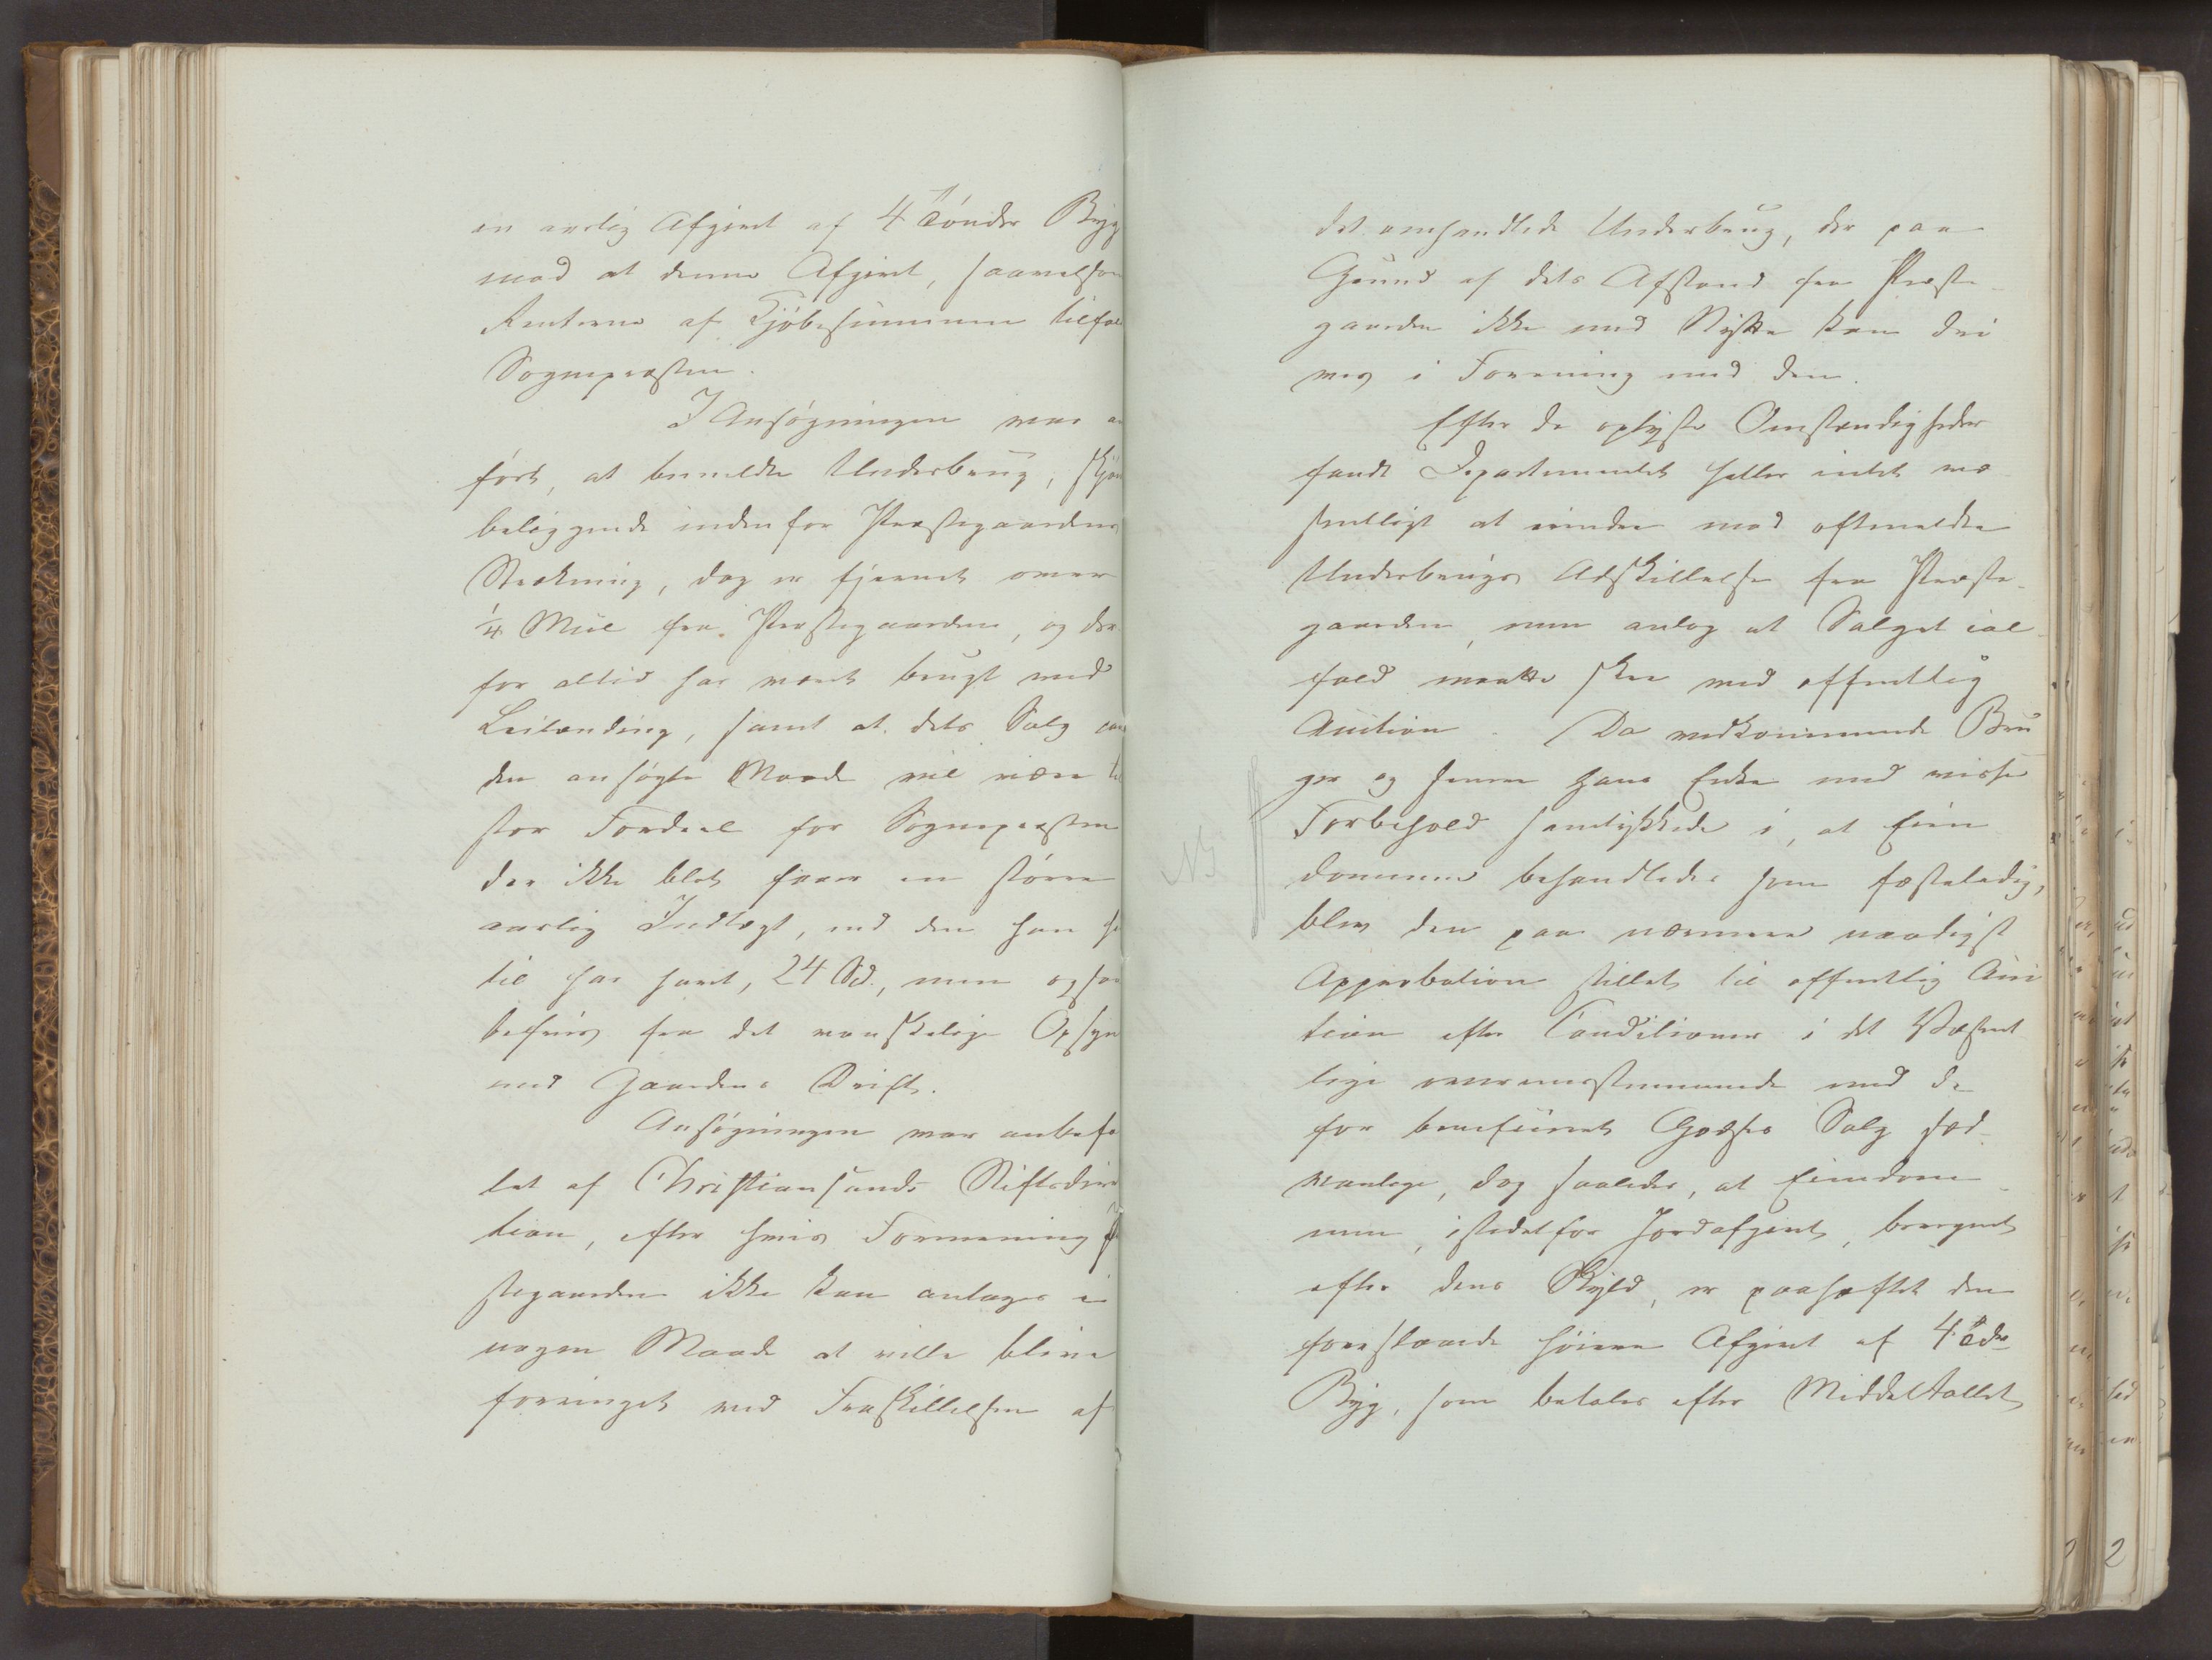 en aarlig Afgivt af 4 Tönder Byg
mod at denne Afgivt, saavelsom
Renterne af Kjöbesummen tilfal
Sognepræsten.
I Ansögningen var an
fört, at bemeldte Underbrug, skjön
beliggende indenfor Præstegaardens
Strækning, dog er fjernet over
1/4 Miil fra Præstegaarden, og der
for altid har været brugt med
Leilænding, samt at dets Salg paa
den ansögte Maade vil være til
stor Fordeel for Sognepræsten
der ikke blot faaer en större
aarlig Indtægt, end den han hi
til har havt, 24 Sd., men ogsaa
befries fra det vanskelige Opsyn
med Gaardens Drift.
Ansögningen var anbefa
let af Christiansands Stiftsdirec
tion, efter hvis Formening Præ
stegaarden ikke kan antages i
nogen Maade at ville blive
forringet ved Fraskillelsen af
det omhandlede Underbrug, der paa
Grund af dets Afstand fra Præste-
gaarden ikke med Nytte kan dri
ves i Forening med den.
Efter de oplyste Omstændigheder
fandt Departementet heller intet væ
sentligt at erindre mod oftmeldte
Underbrugs Adskillelse fra Præste-
gaarden, men antog at Salget ial-
fald maatte skee ved offentlig
Auction. Da vedkommende Bru
ger og senere hans Enke med visse
Forbehold samtykkede i, at Eien
NB
dommen behandledes som fæsteledig,
blev den paa nærmere naadigst
Approbation stillet til offentlig Auc
tion efter Conditioner i det Væsent
lige overensstemmende med de
for beneficeret Godses Salg sæd-
vanlige, dog saaledes, at Eiendom-
men, istedetfor Jordafgivt, beregnet
efter dens Skyld, er paahæftet den
foreslaaede höiere Afgivt af 4 Tdr
Byg, som betales efter Middeltallet
2